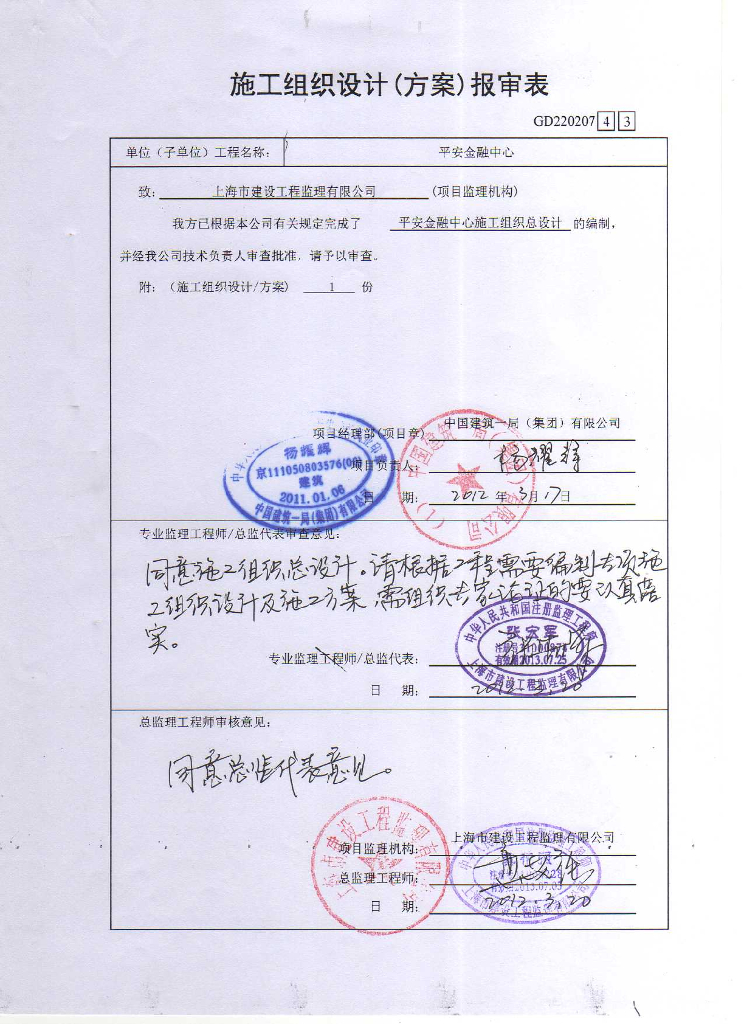 施工组织设计(方案)报审表
GD220207 4 3
单位（子单位）工程名称： 平安金融中心
致： 上海市建设工程监理有限公司 (项目监理机构)
我方已根据本公司有关规定完成了 平安金融中心施工组织总设计 的编制，
并经我公司技术负责人审查批准，请予以审查。
附：（施工组织设计/方案） 1 份
中国建筑一局（集团）有限公司
项目经理部(项目章)
杨耀辉
京111050803576(00)
建筑
2011.01.06
中国建筑一局(集团)有限公司
项目负责人： 杨耀辉
日 期： 2012 年 3月 17日
专业监理工程师/总监代表审查意见：
同意施工组织总设计。请根据工程需要编制专项施
工组织设计及施工方案，需组织专家论证的要认真落
实。
中华人民共和国注册监理工程师
张宏军
有效期2013.07.25
上海市建设工程监理有限公司
专业监理工程师/总监代表：
日 期： 2012.3.20
总监理工程师审核意见：
同意总监代表意见。
上海市建设工程监理有限公司
项目监理机构：
总监理工程师：
日 期： 2012.3.20